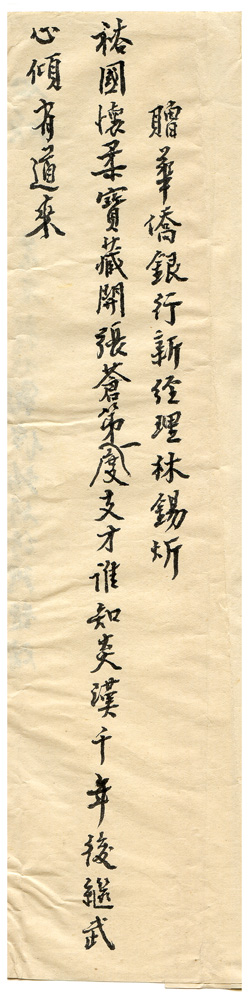 贈華僑銀行新經理林錫炘
裕國懷柔寶藏開張蒼第一度支才誰知炎漢千年後繼武
心傾有道來